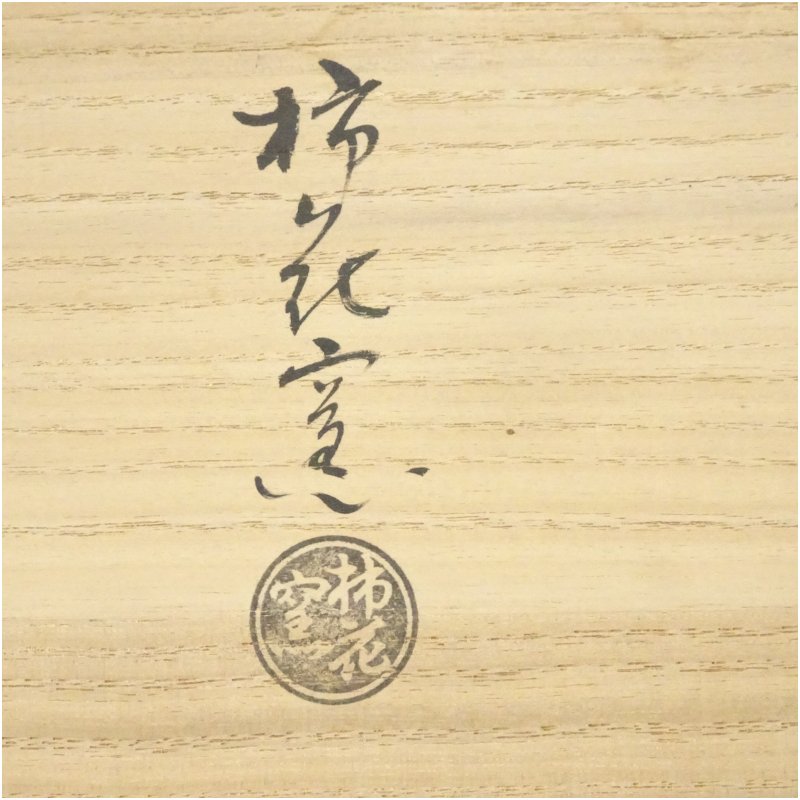 柿花窯
柿花
窯